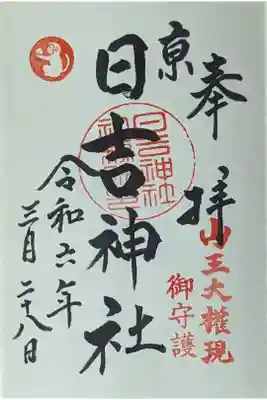 奉拝
山王大権現
御守護
京
日吉神社
日吉神社
令和六年
三月二十八日